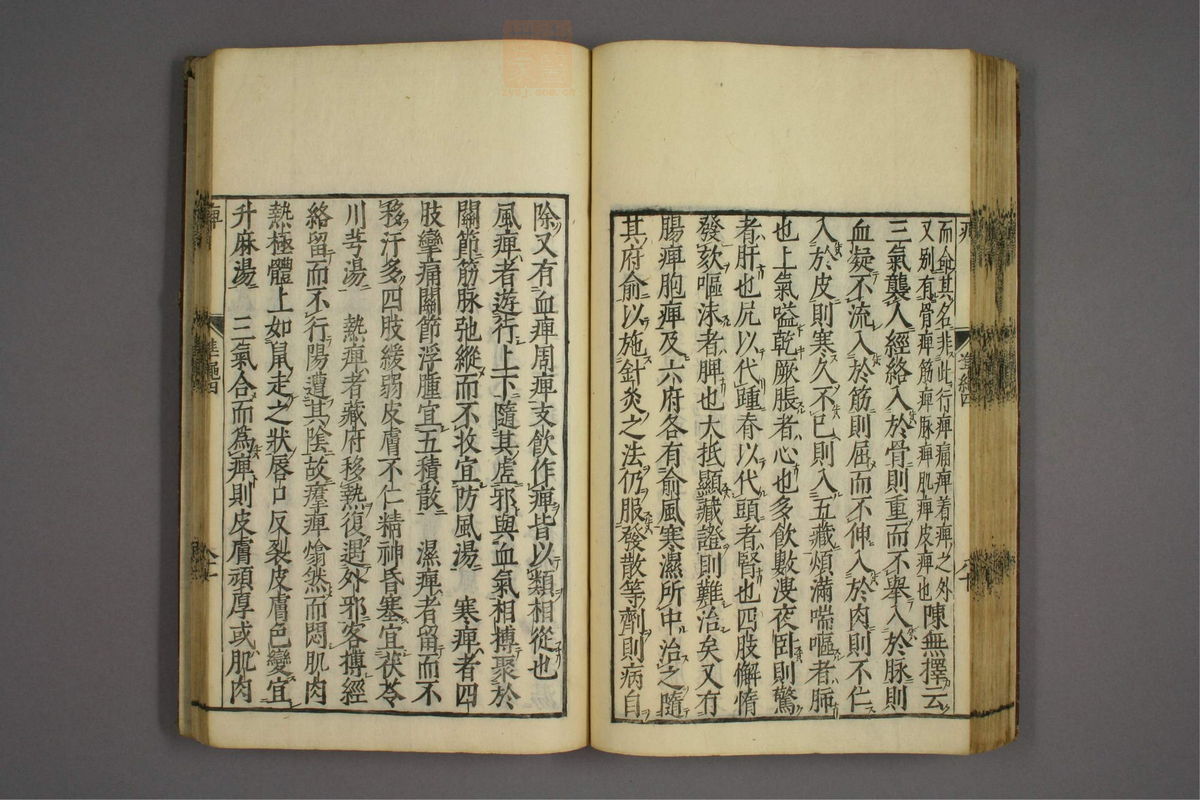 而命其名非此行痺痛痺着痺之外
又别有骨痺筋痺脉痺肌痺皮痺也
陳無擇云
三氣襲入經絡入於骨則重而不舉入於脉則
血凝不流入於筋則屈而不伸入於肉則不仁
入於皮則寒久不已則入五藏煩滿喘嘔者肺
也上氣嗌乾厥脹者心也多飲數溲夜臥則驚
者肝也尻以代踵舂以代頭者腎也四肢懈惰
發欬嘔沫者脾也大抵顯藏證則難治矣又有
腸痺胞痺及六府各有俞風寒濕所中治之隨
其府俞以施針灸之法仍服發散等劑則病自
除又有血痺周痺支飲作痺皆以類相從也
風痺者遊行上下隨其虛邪與血氣相搏聚於
關節筋脉弛縱而不收宜防風湯　寒痺者四
肢攣痛關節浮腫宜五積散　濕痺者留而不
移汗多四肢緩弱皮膚不仁精神昏塞宜茯苓
川芎湯　熱痺者藏府移熱復遇外邪客搏經
絡留而不行陽遭其陰故𤸷痺熻然而悶肌肉
熱極體上如鼠走之狀唇口反裂皮膚色變宜
升麻湯　三氣合而爲痺則皮膚頑厚或肌肉
痺
準繩四